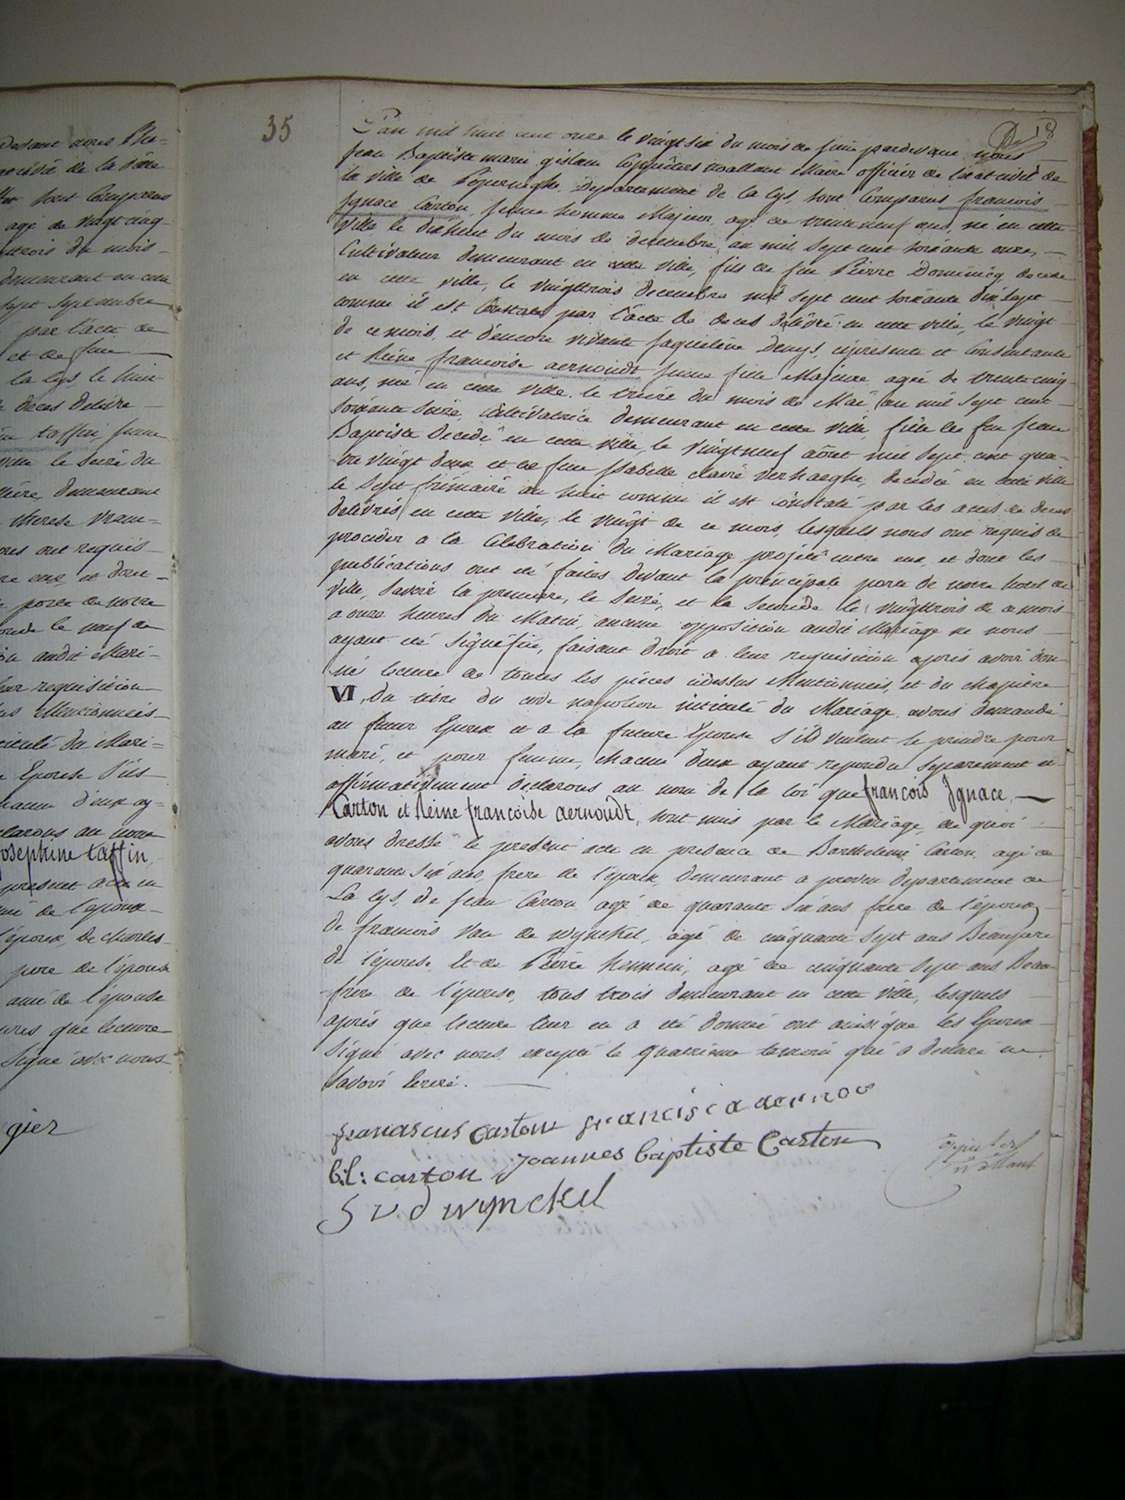 Devant nous
âgé de vingt cinq
du mois
demeurant en cette
sept Septembre
par l'acte de
et de feue
la Lys le
deces delivré
taffin jeune
ville le Seize du
demeurant
therese
ont requis
porte de notre
le neuf de
audit Mari-
leur requisition
Mentionnées
intitulé du Mari-
Epouse S'ils
chacun d'eux ay-
declarons au nom
josephine taffin
present acte en
de l'epoux
l'epoux, de charles
pere de l'épouse
ami de l'épouse
que lecture
Signé avec nous
gier
35
18
L'an mil huit cent onze le vingt six du mois de juin pardevant nous
jean Baptiste marie gislain maire officier de l'état civil de
la ville de Poperinghe, Departement de la Lys, sont Comparus francois
Ignace Carton, jeune homme Majeur, agé de trente neuf ans, né en cette
ville le dixhuit du mois de decembre, an mil sept cent soixante onze,
Cultivateur demeurant en cette ville, fils de feu Pierre Dominicq decedé
en cette ville, le vingttrois decembre mil sept cent soixante dix sept
comme il est Constaté par l'acte de deces delivré en cette ville, le vingt
de ce mois, et d'encore vivante Jaqueline Denys, cipresente et Consentante
et Reine francoise aernoudt jeune fille Majeure, agée de trente cinq
ans, née en cette ville le treize du mois de Mai an mil sept cent
soixante Seize, Cultivatrice demeurant en cette ville, fille de feu jean
Baptiste decedé en cette ville, le vingtneuf aôut mil sept cent qua-
tre vingt deux et de feue Isabelle claire verhaeghe, decedée en cette ville
le Sept frimaire an huit comme il est constaté par les actes de deces
delivrés en cette ville, le vingt de ce mois, lesquels nous ont requis de
proceder a la Célebration du Mariage projetté entre eux, et dont les
publications ont été faites devant la principale porte de notre hotel de
ville, Savoir la premiere, le Seize, et la Seconde le vingttrois de ce mois
a onze heures du Matin, aucune opposition audit Mariage ne nous
ayant eté Signifiée, faisant droit a leur requisition après avoir don-
né lecture de toutes les pieces cidessus Mentionnées, et du chapitre
VI, du titre du code napoleon intitulé du Mariage avons demandé
au futur Epoux et a la future Epouse S'ils veulent se prendre pour
mari, et pour femme, chacun d'eux ayant repondu Separement et
affirmativement declarons au nom de la loi que francois Ignace
Carton et Reine francoise aernoudt, sont unis par le Mariage, de quoi
avons dressé le present acte en presence de Barthelemi Carton, agé de
quarante Six ans, frere de l'epoux, demeurant a proven departement de
La Lys, de jean Carton agé de quarante Six ans frere de l'époux,
de francois Van de wynckel, agé de cinquante Sept ans Beaupere
de l'épouse Et de Pierre agé de cinquante Sept ans Beau-
frere de l'épouse, tous trois demeurant en cette ville, lesquels
après que lecture leur en a eté donné ont ainsi que les Epoux
Signé avec nous excepté le quatrieme temoin qui a declaré ne
Savoir Ecrire.
franciscus carton francisca aernou
b:l: carton joannes baptiste Carton
S v d wynckel